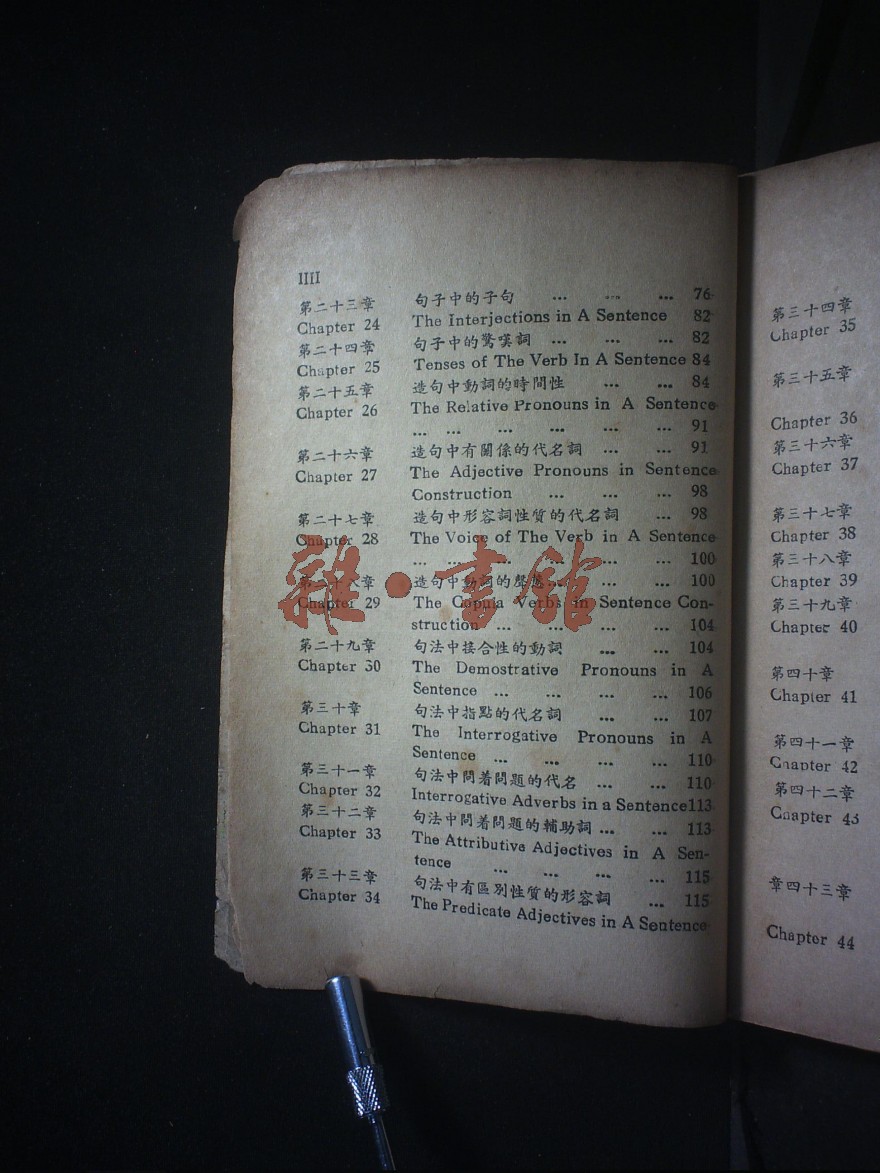 IIII
第二十三章 句子中的子句 ... ... ... 76
Chapter 24 The Interjections in A Sentence 82
第二十四章 句子中的驚嘆詞 ... ... ... 82
Chapter 25 Tenses of The Verb In A Sentence 84
第二十五章 造句中動詞的時間性 ... ... 84
Chapter 26 The Relative Pronouns in A Sentence
... ... ... ... ... ... 91
第二十六章 造句中有關係的代名詞 ... ... 91
Chapter 27 The Adjective Pronouns in Sentence
Construction ... ... ... 98
第二十七章 造句中形容詞性質的代名詞 ... 98
Chapter 28 The Voice of The Verb in A Sentence
... ... ... ... ... ... 100
第二十八章 造句中動詞的聲態... ... ... 100
Chapter 29 The Copula Verbs in Sentence Con-
struction ... ... ... ... 104
第二十九章 句法中接合性的動詞 ... ... 104
Chapter 30 The Demostrative Pronouns in A
Sentence ... ... ... ... 106
第三十章 句法中指點的代名詞 ... ... 107
Chapter 31 The Interrogative Pronouns in A
Sentence ... ... ... ... 110
第三十一章 句法中問着問題的代名 ... ... 110
Chapter 32 Interrogative Adverbs in a Sentence113
第三十二章 句法中問着問題的輔助詞 ... ... 113
Chapter 33 The Attributive Adjectives in A Sen-
tence ... ... ... ... 115
第三十三章 句法中有區別性質的形容詞 ... 115
Chapter 34 The Predicate Adjectives in A Sentence
第三十四章
Chapter 35
第三十五章
Chapter 36
第三十六章
Chapter 37
第三十七章
Chapter 38
第三十八章
Chapter 39
第三十九章
Chapter 40
第四十章
Chapter 41
第四十一章
Chapter 42
第四十二章
Chapter 43
章四十三章
Chapter 44
雜·書館